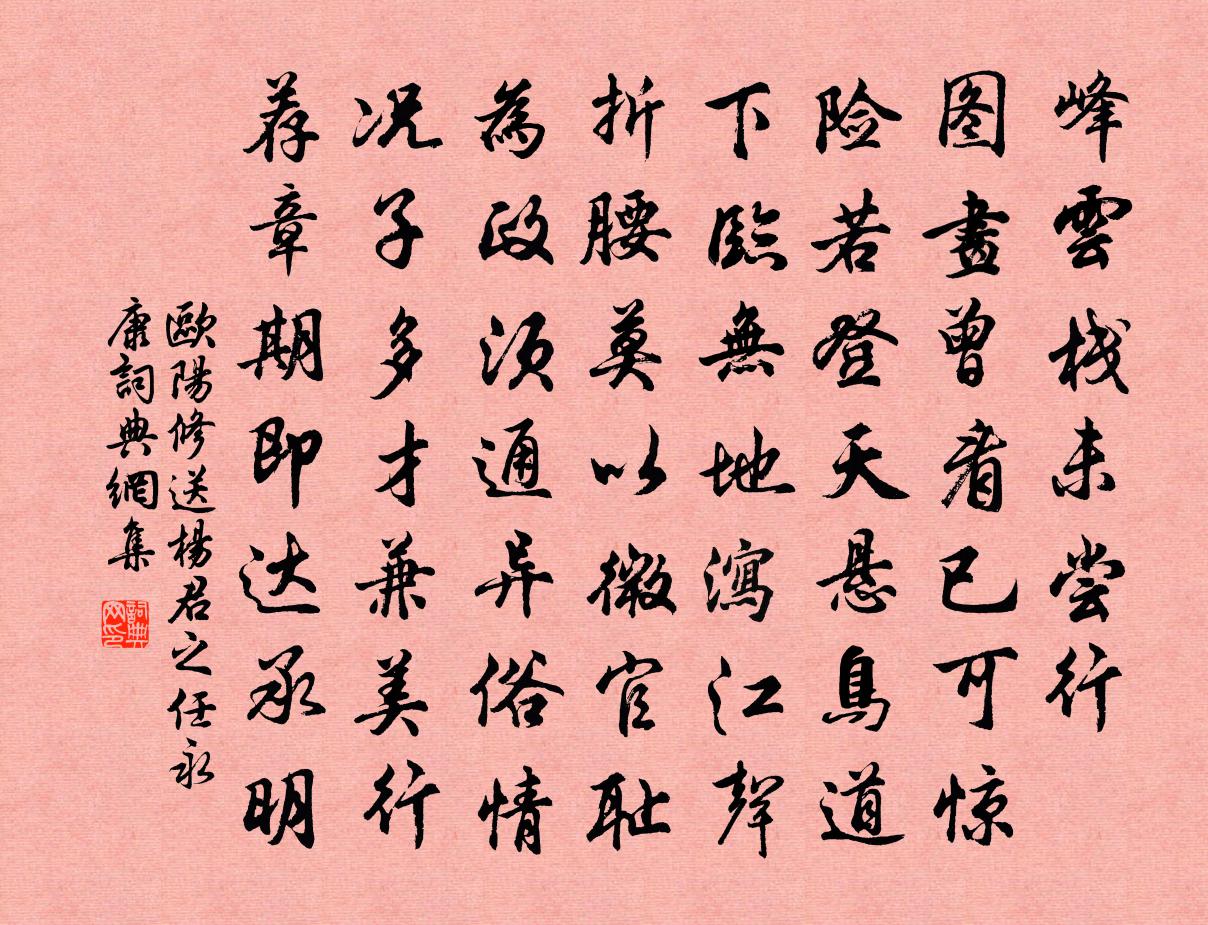 峰雲棧未尝行
图畫曾看已可惊
险若登天悬鳥道
下臨無地瀉江聲
折腰莫以微官耻
為政须通异俗情
况子多才兼美行
荐章期即达承明
歐陽修送楊君之任永
康詞典網集
詞典
网印